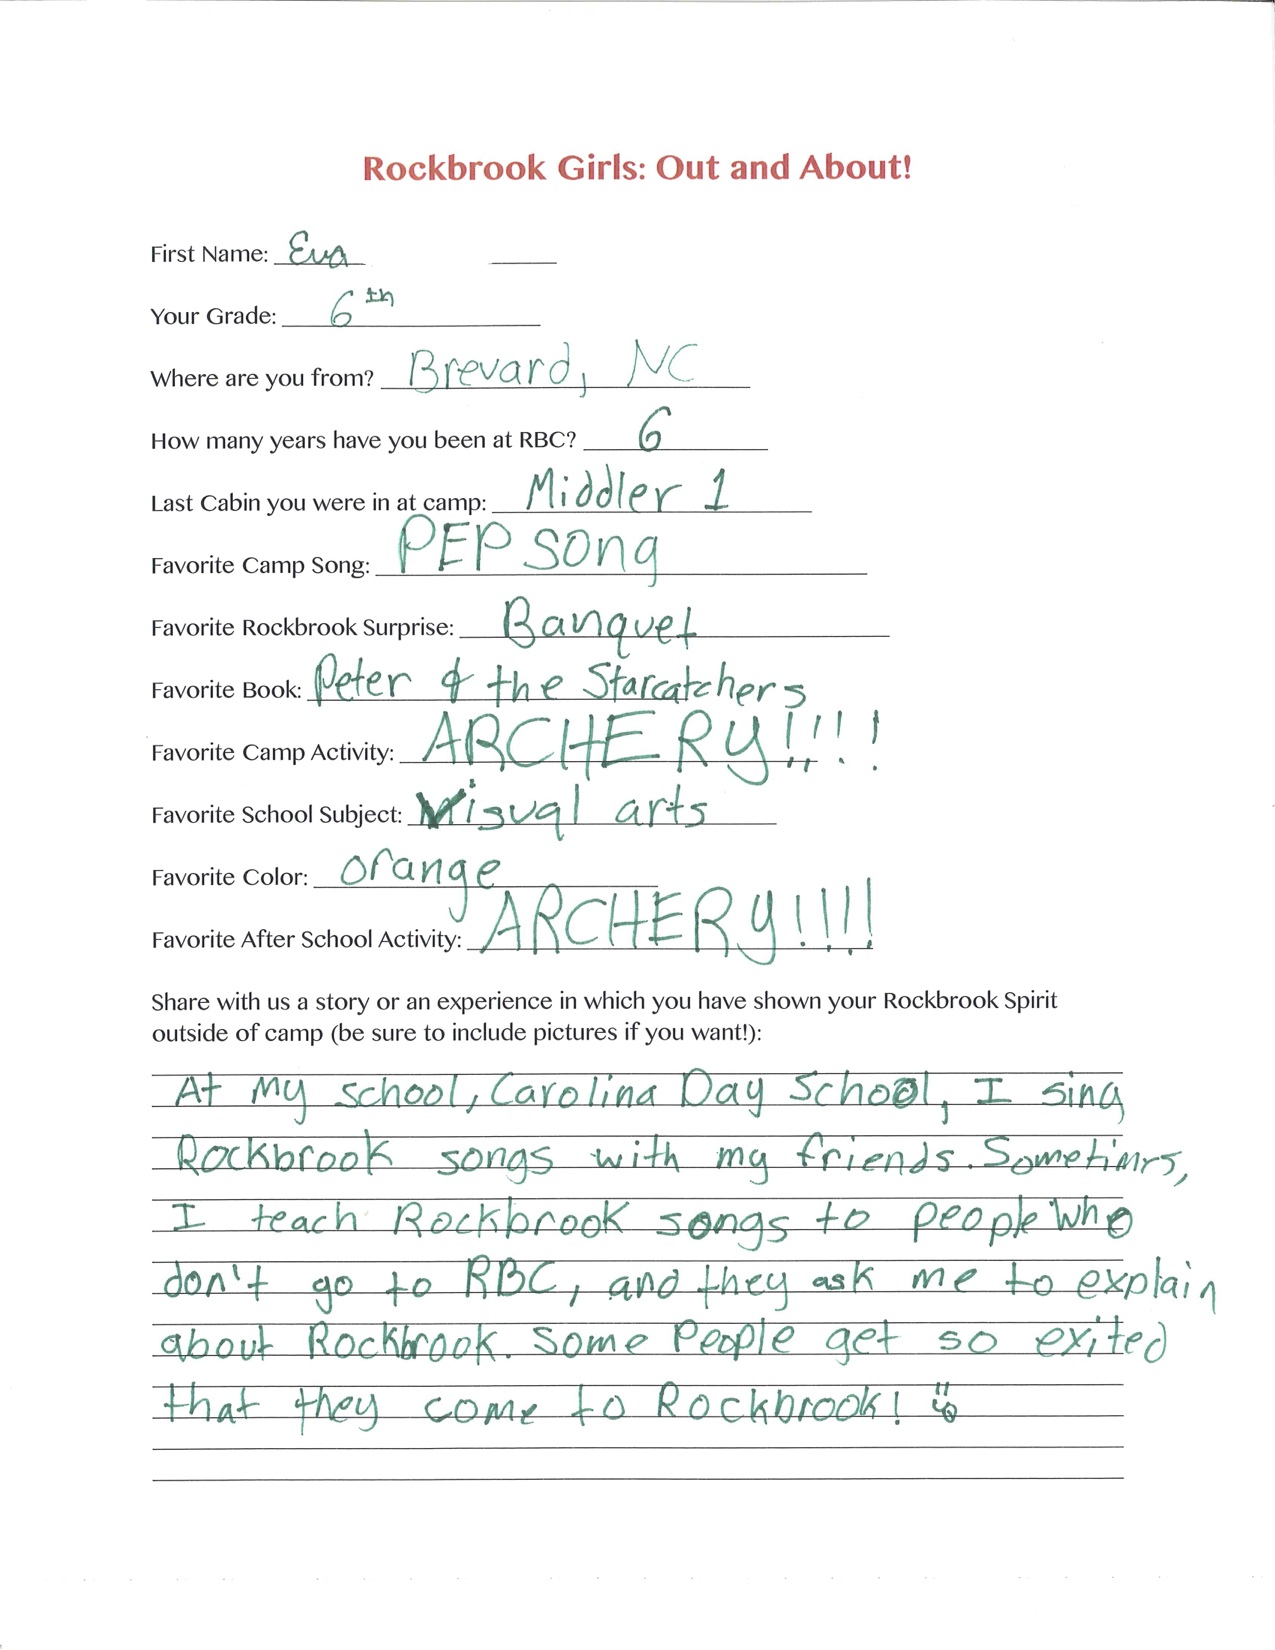 Rockbrook Girls: Out and About!
First Name: Eva
Your Grade: 6th
Where are you from? Brevard, NC
How many years have you been at RBC? 6
Last Cabin you were in at camp: Middler 1
Favorite Camp Song: PEP song
Favorite Rockbrook Surprise: Banquet
Favorite Book: Peter & the Starcatchers
Favorite Camp Activity: ARCHERY!!!!
Favorite School Subject: Visual arts
Favorite Color: orange
Favorite After School Activity: ARCHERY!!!!
Share with us a story or an experience in which you have shown your Rockbrook Spirit
outside of camp (be sure to include pictures if you want!):
At My school, Carolina Day School, I sing
Rockbrook songs with my friends. Sometimrs,
I teach Rockbrook songs to people who
don't go to RBC, and they ask me to explain
about Rockbrook. Some People get so exited
that they come to Rockbrook!